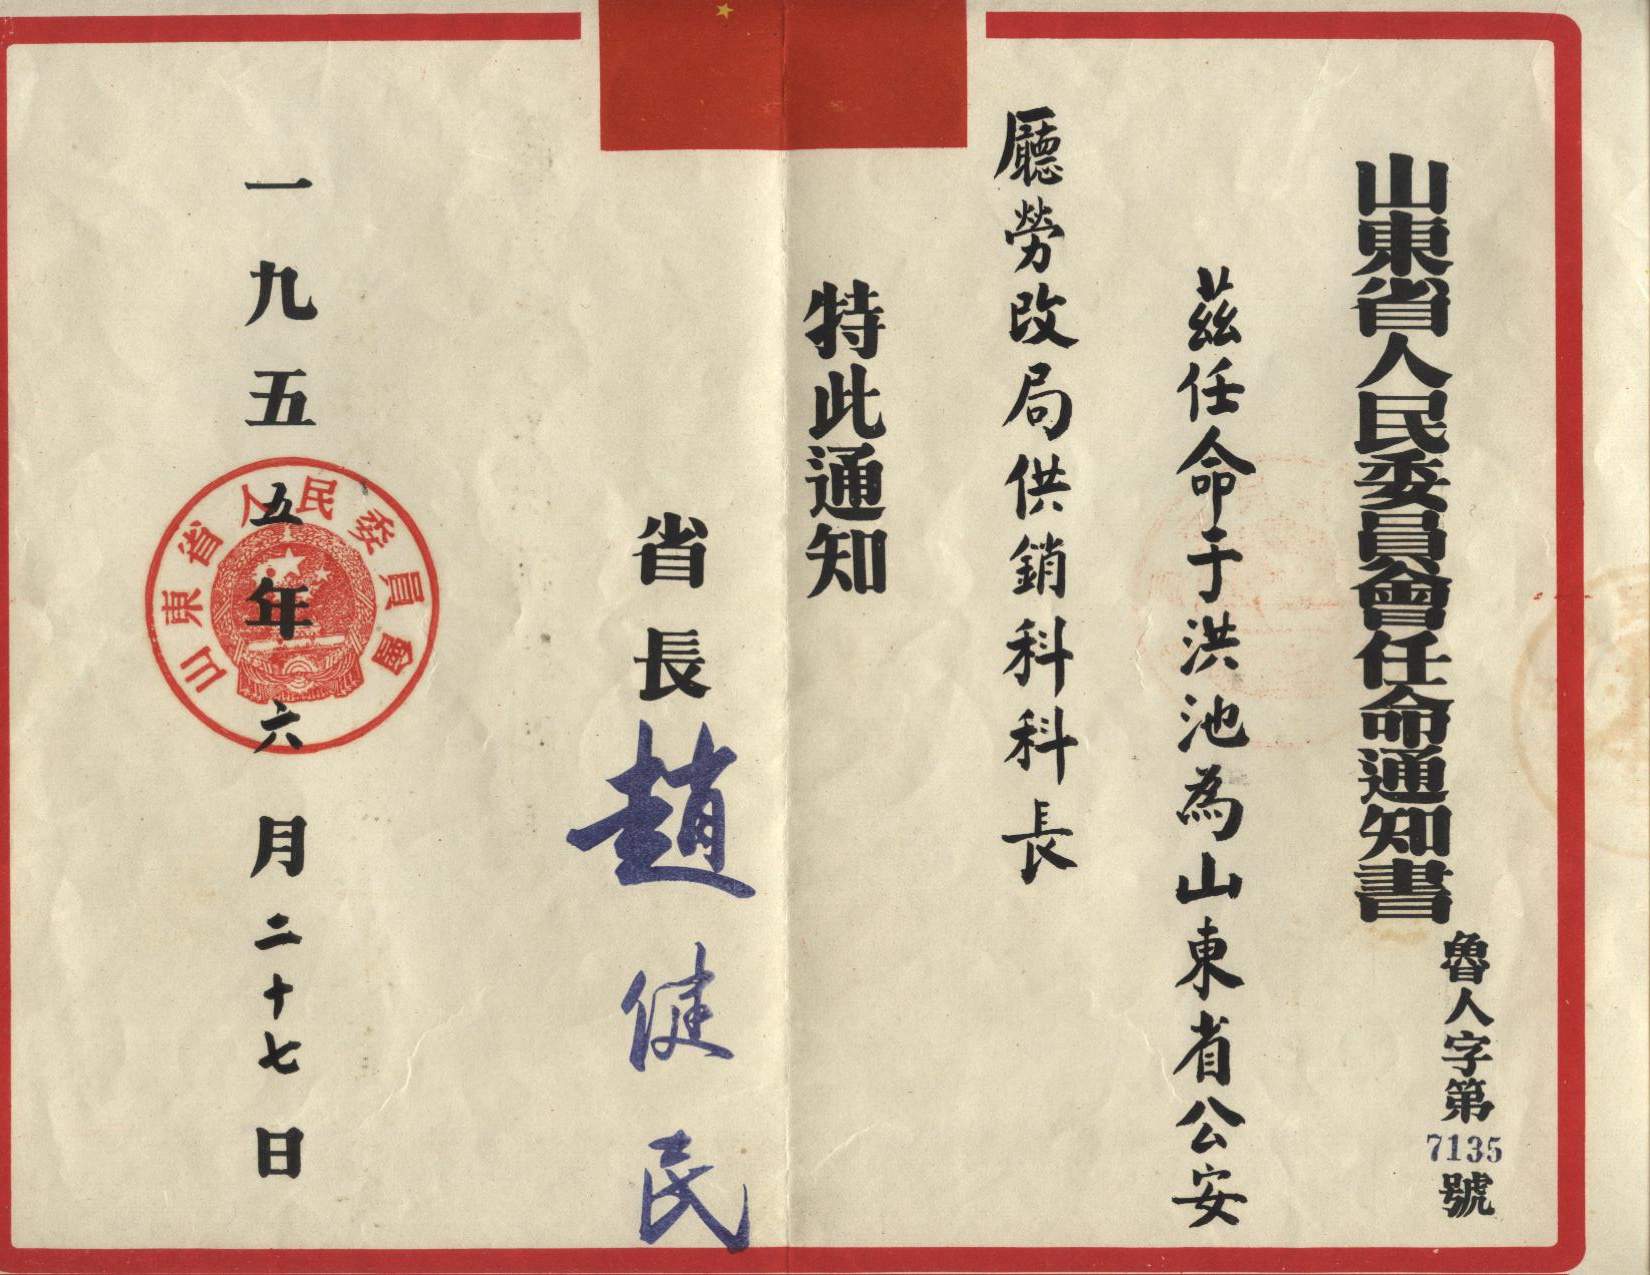 山東省人民委員會任命通知書
魯人字第7135號
茲任命于洪池為山東省公安
廳勞改局供銷科科長
特此通知
省長趙健民
一九五五年六月二十七日
山東省人民委員會